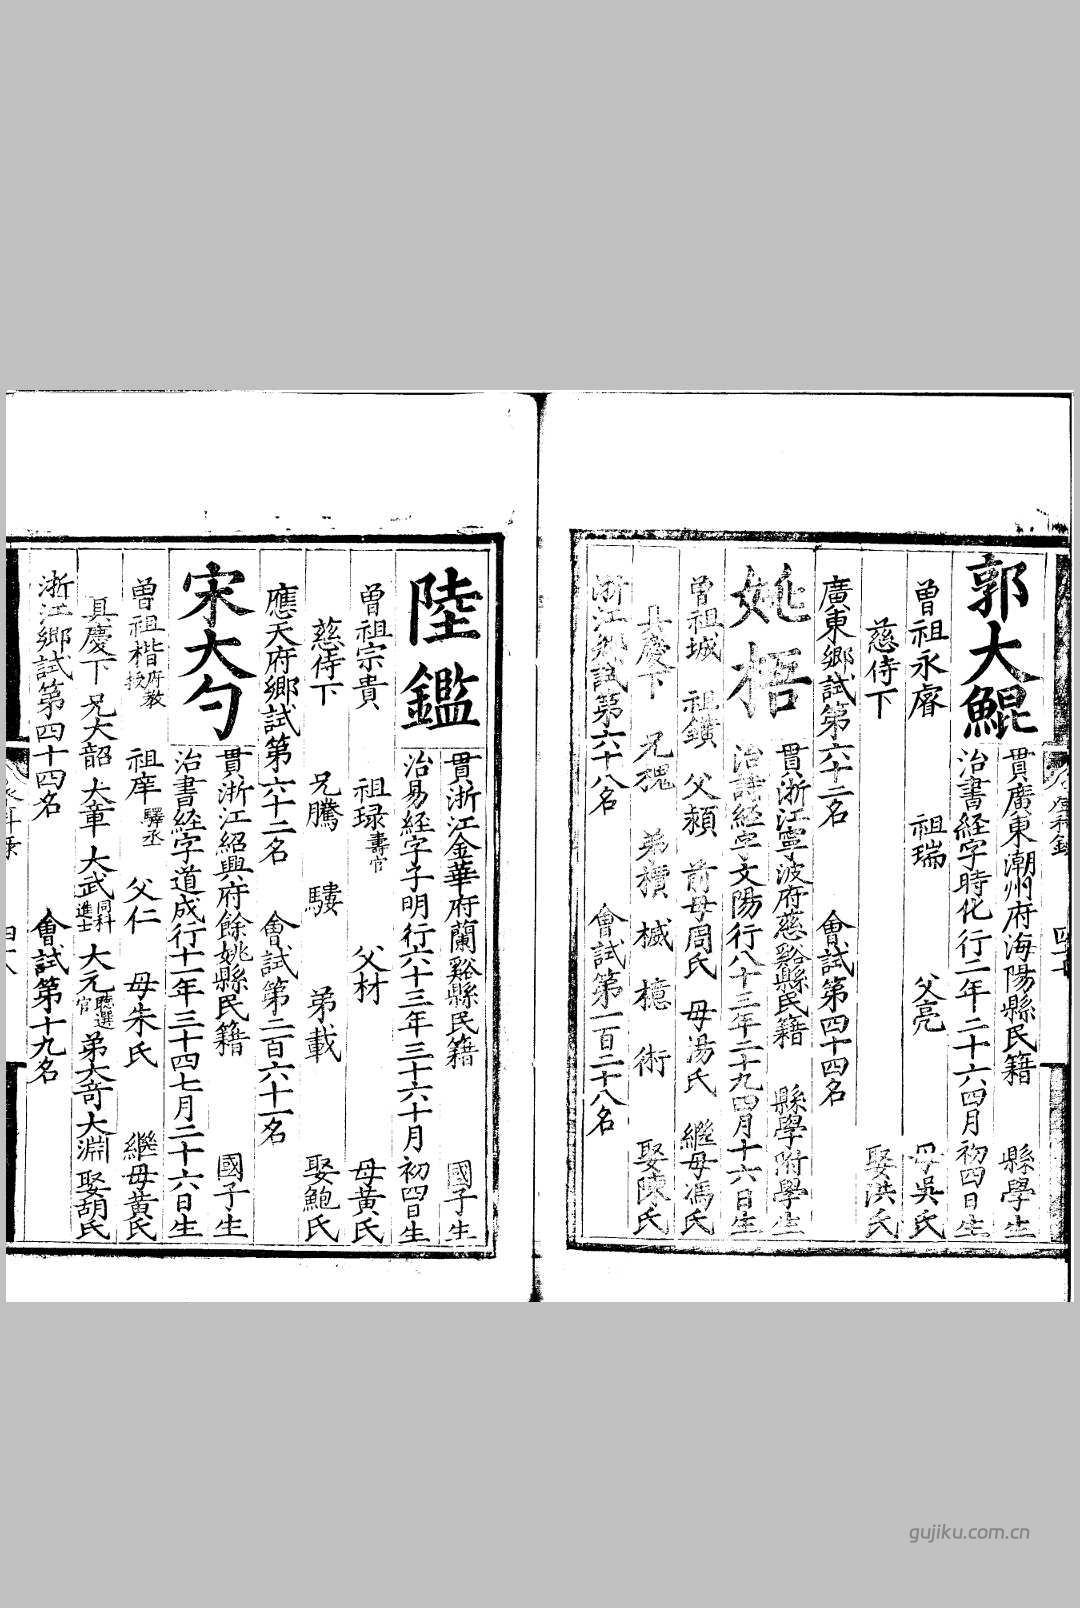 郭大鯤
貫廣東潮州府海陽縣民籍 縣學生
治書經字時化行二年二十六四月初四日生
曾祖永睿 祖瑞 父亮 母吳氏
慈侍下 娶洪氏
廣東鄉試第六十二名 會試第四十四名
姚梧
貫浙江寧波府慈谿縣民籍 縣學附學生
治詩經字文陽行八十三年二十九四月十六日生
曾祖城 祖鐄 父熲 前母周氏 母湯氏 繼母馮氏
具慶下 兄槐 弟檟 檅 檍 術 娶陳氏
浙江鄉試第六十八名 會試第一百二十八名
陸鑑
貫浙江金華府蘭谿縣民籍 國子生
治易經字子明行六十三年三十六十月初四日生
曾祖宗貴 祖琭壽官 父材 母黃氏
慈侍下 兄騰 驍 弟載 娶鮑氏
應天府鄉試第六十二名 會試第二百六十一名
宋大勺
貫浙江紹興府餘姚縣民籍 國子生
治書經字道成行十一年三十四七月二十六日生
曾祖楷府教授 祖庠驛丞 父仁 母朱氏 繼母黃氏
具慶下 兄大韶 大章 大武同科進士 大元聽選官 弟大奇 大淵 娶胡氏
浙江鄉試第四十四名 會試第十九名
gujiku.com.cn